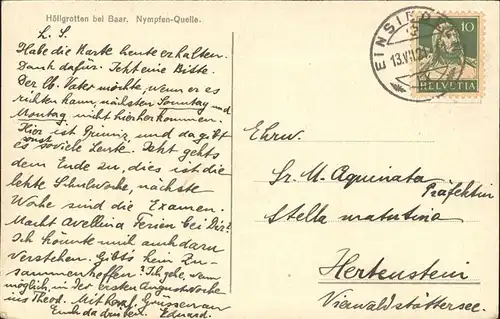 Höllgrotten bei Baar. Nymphen-Quelle.
L. S.
Habe die Karte heute erhalten.
Dank dafür. Jetzt eine Bitte.
Der lb. Vater möchte, wenn er es
richten kann, nächsten Sonntag und
Montag nicht hierherkommen.
Hier ist Primiz und da gibt
es sonst soviele Leute. Jetzt gehts
dem Ende zu, dies ist die
letzte Schulwoche, nächste
Woche sind die Examen.
Macht Avellina Ferien bei Dir?
Ich könnte mich auch dazu
verstehen. Gibt's kein Zu-
sammentreffen? Ich gehe, wenn
möglich, in der ersten Augustwoche
ins Theod. Mit herzl. Grüssen an
Euch da drüben. Eduard.
EINSIEDELN
13.VII.
10
HELVETIA
Ehrw.
Sr. M. Aquinata
Präfektin
Stella matutina
Hertenstein
Vierwaldstättersee.